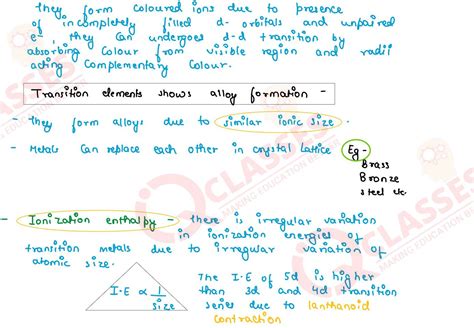 They form coloured ions due to presence
of incompletely filled d- orbitals and unpaired
e-, they can undergoes d-d transition by
absorbing colour from visible region and radii
acting complementary colour.
Transition elements shows alloy formation -
- They form alloys due to similar ionic size.
- Metals can replace each other in crystal lattice Eg -
Brass
Bronze
steel etc
- Ionization enthalpy - there is irregular variation
in ionization energies of
transition metals due to irregular variation of
atomic size.
I.E ∝ 1/size
The I.E of 5d is higher
than 3d and 4d transition
series due to lanthanoid
contraction
CLASSES
MAKING EDUCATION
CLASSES
MAKING EDUCATION